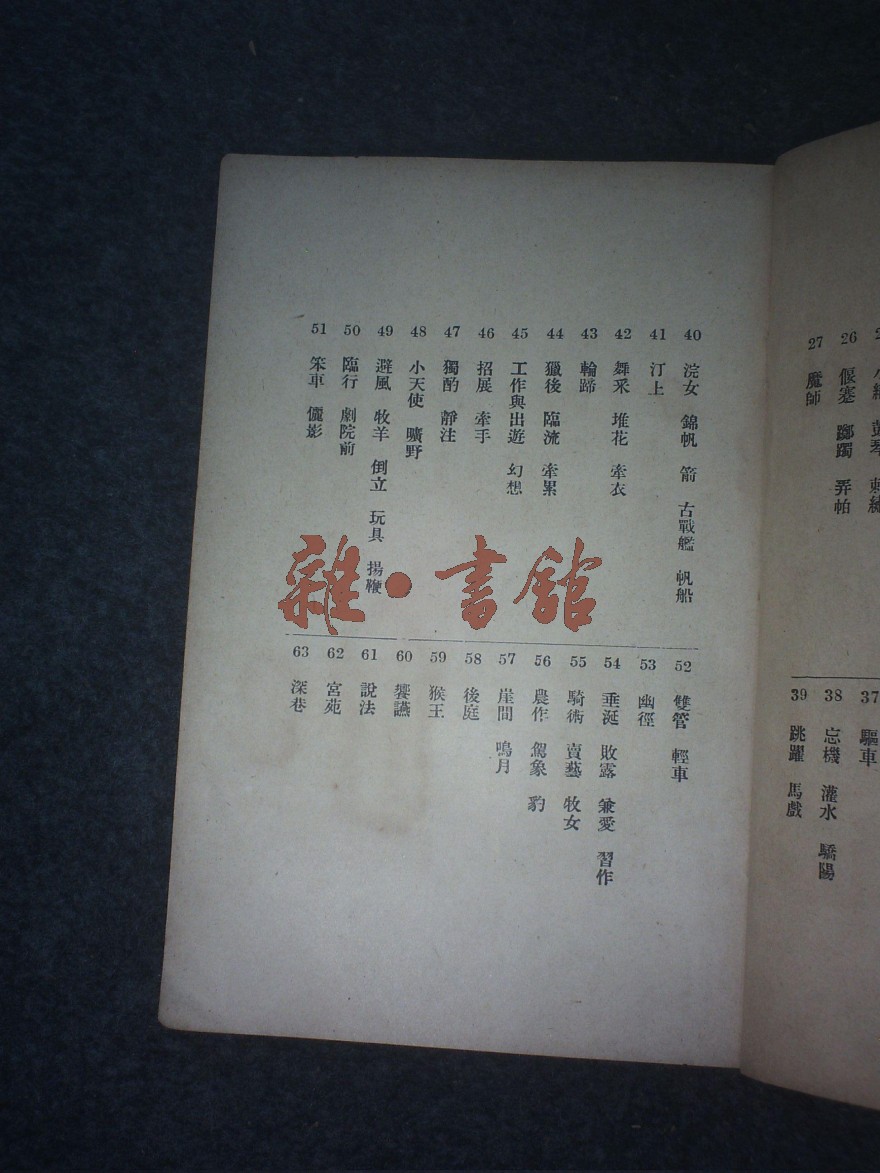 26 偃蹇 躑躅 弄帕
27 魔師
37 驅車
38 忘機 灌水 驕陽
39 跳躍 馬戲
40 浣女 錦帆 箭 古戰艦 帆船
41 汀上
42 舞釆 堆花 牽衣
43 輪蹄
44 獵後 臨流 牽累
45 工作與出遊 幻想
46 招展 牽手
47 獨酌 靜注
48 小天使 曠野
49 避風 牧羊 倒立 玩具 揚鞭
50 臨行 劇院前
51 笨車 儷影
52 雙管 輕車
53 幽徑
54 垂涎 敗露 兼愛 習作
55 騎術 賣藝 牧女
56 農作 駕象 豹
57 崖間 鳴月
58 後庭
59 猴王
60 饗讌
61 說法
62 宮苑
63 深巷
雜·書館